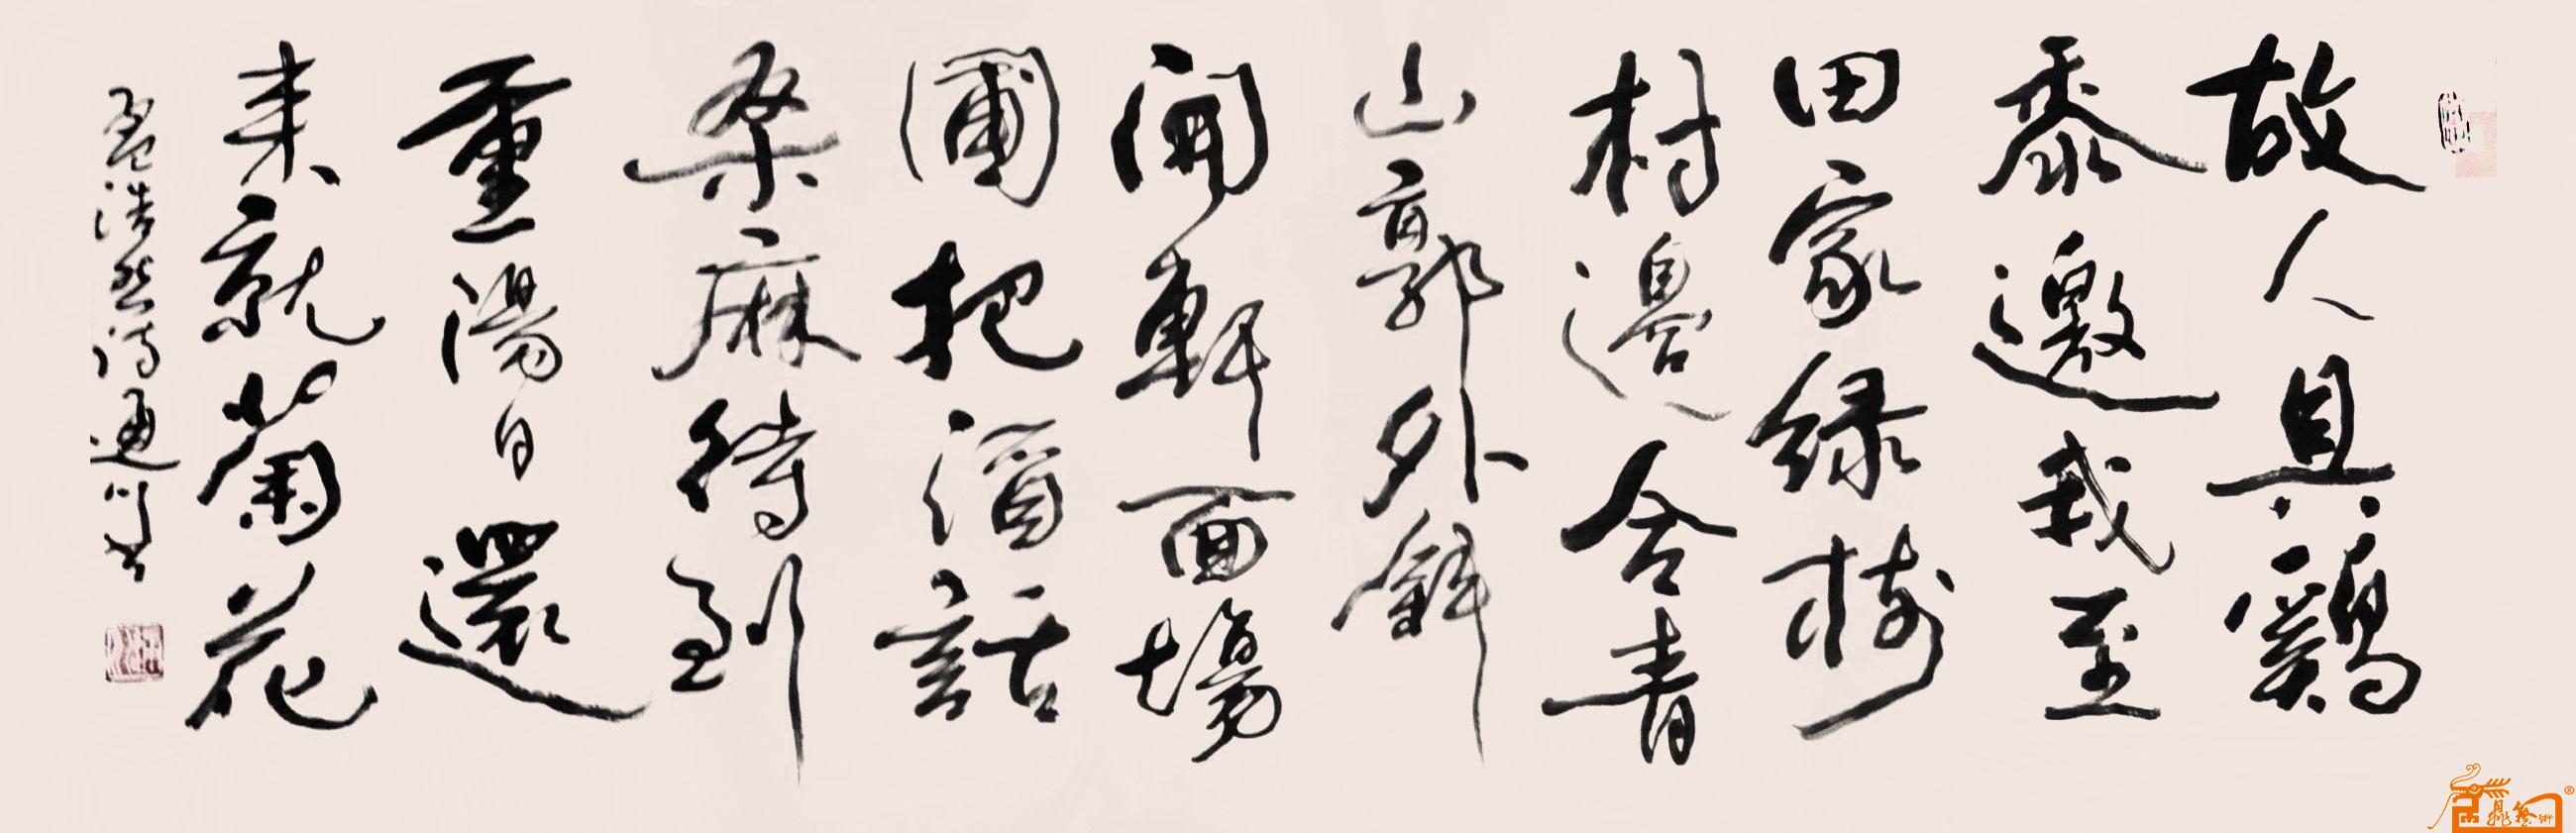 故人具鷄
黍邀我至
田家绿樹
村邊合青
山郭外斜
開軒面場
圃把酒話
桑麻待到
重陽日還
来就菊花
孟浩然詩